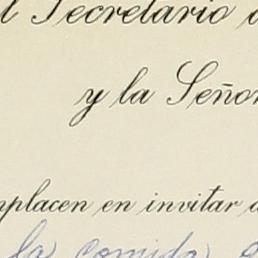 l Secretario d
y la Señor
mplacen en invitar a
la comida